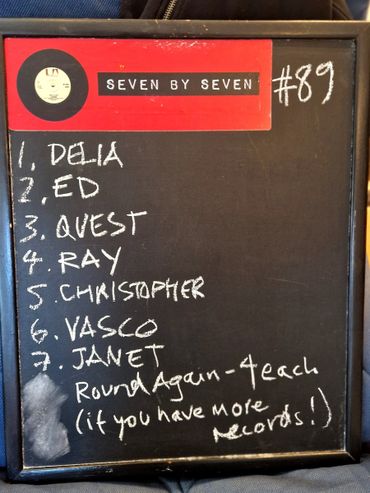 SEVEN BY SEVEN
#89
1. DELIA
2. ED
3. QUEST
4. RAY
5 CHRISTOPHER
6. VASCO
7. JANET
Round Again - 4 each
(if you have more
records!)